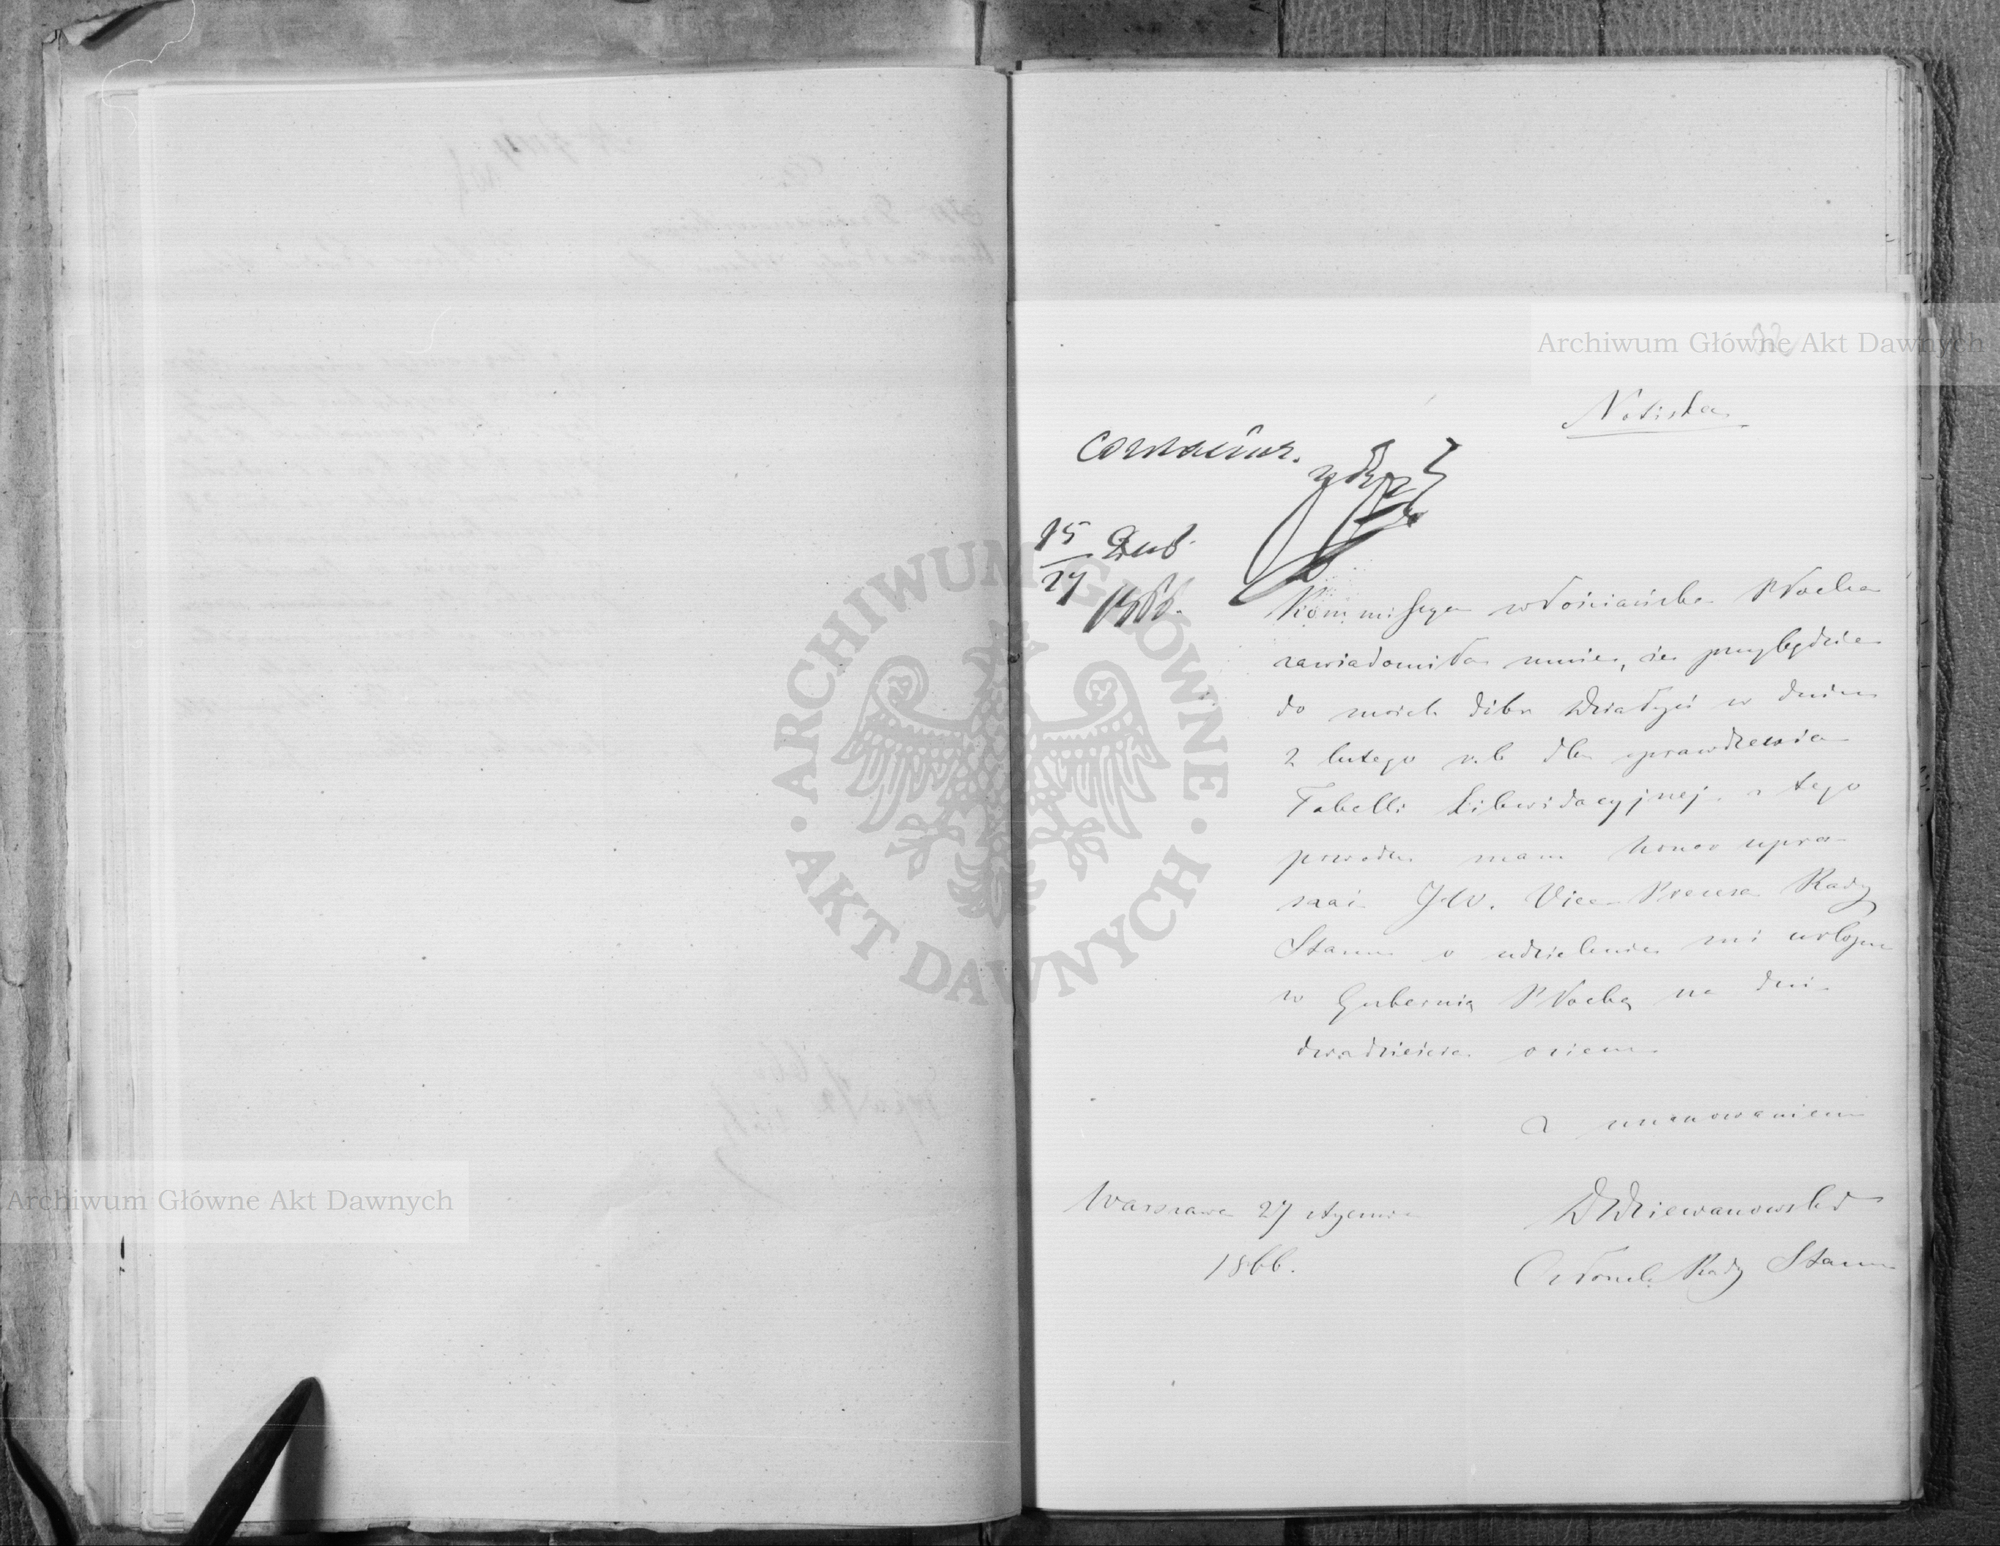 32
Notiska
Согласенъ.
15/27 Янв.
1866.
Kommissya włościańska Płocka
zawiadomiła mnie, że przybędzie
do moich dóbr Działyń w dniu
2 lutego r.b dla sprawdzenia
Tabelli Likwidacyjnej, z tego
powodu mam honor upra-
szać JW. Vice Prezesa Rady
Stanu o udzielenie mi urlopu
w Gubernią Płocką na dni
dwadzieścia osiem
z uszanowaniem
Warszawa 27 stycznia
1866.
DDziewanowski
Członek Rady Stanu
Archiwum Główne Akt Dawnych
Archiwum Główne Akt Dawnych
ARCHIWUM GŁÓWNE
AKT DAWNYCH